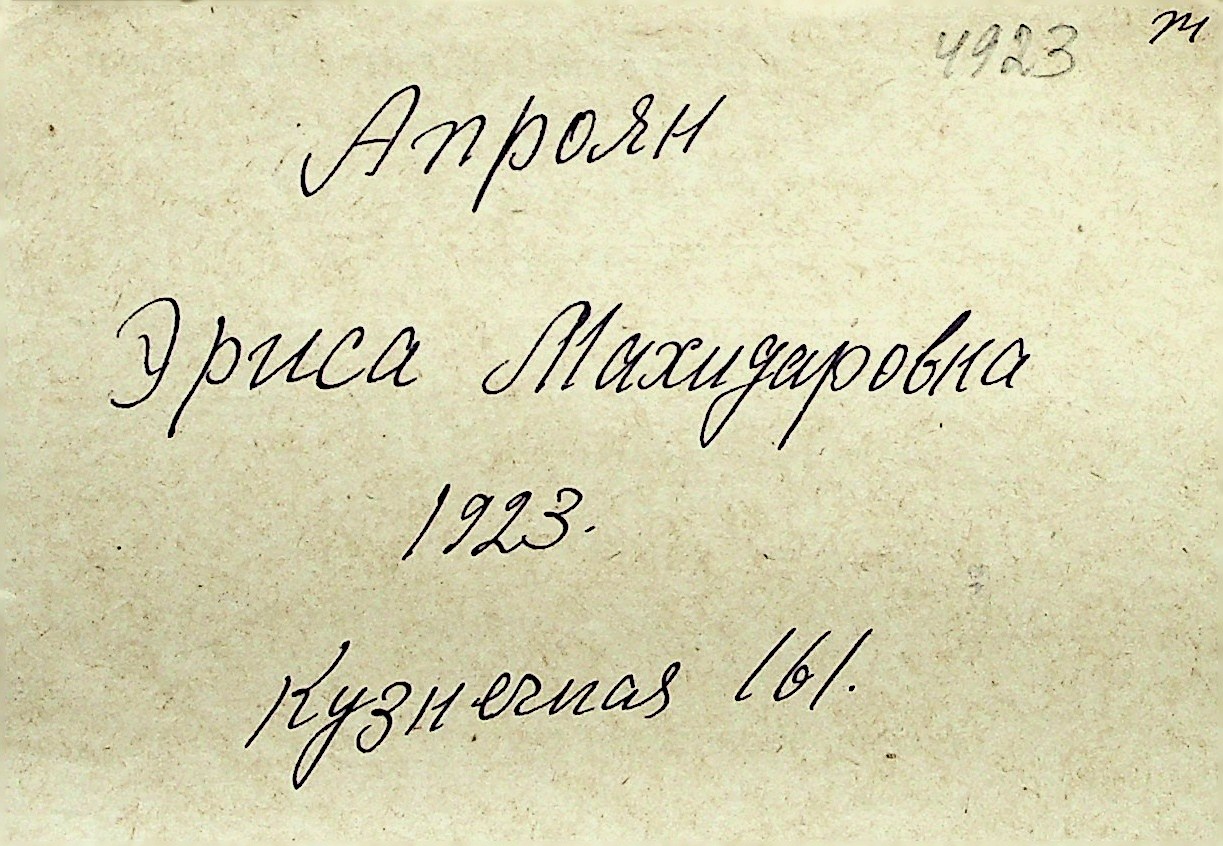 4923
Апроян
Эриса Махидаровна
1923.
Кузнечная 161.